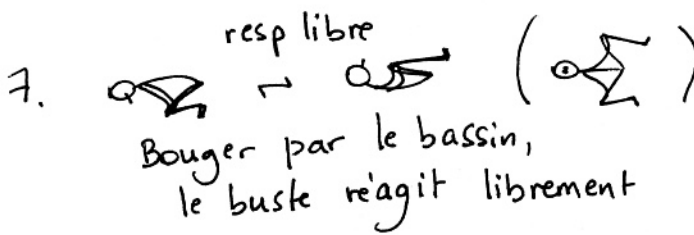 resp libre
7.
Bouger par le bassin,
le buste réagit librement